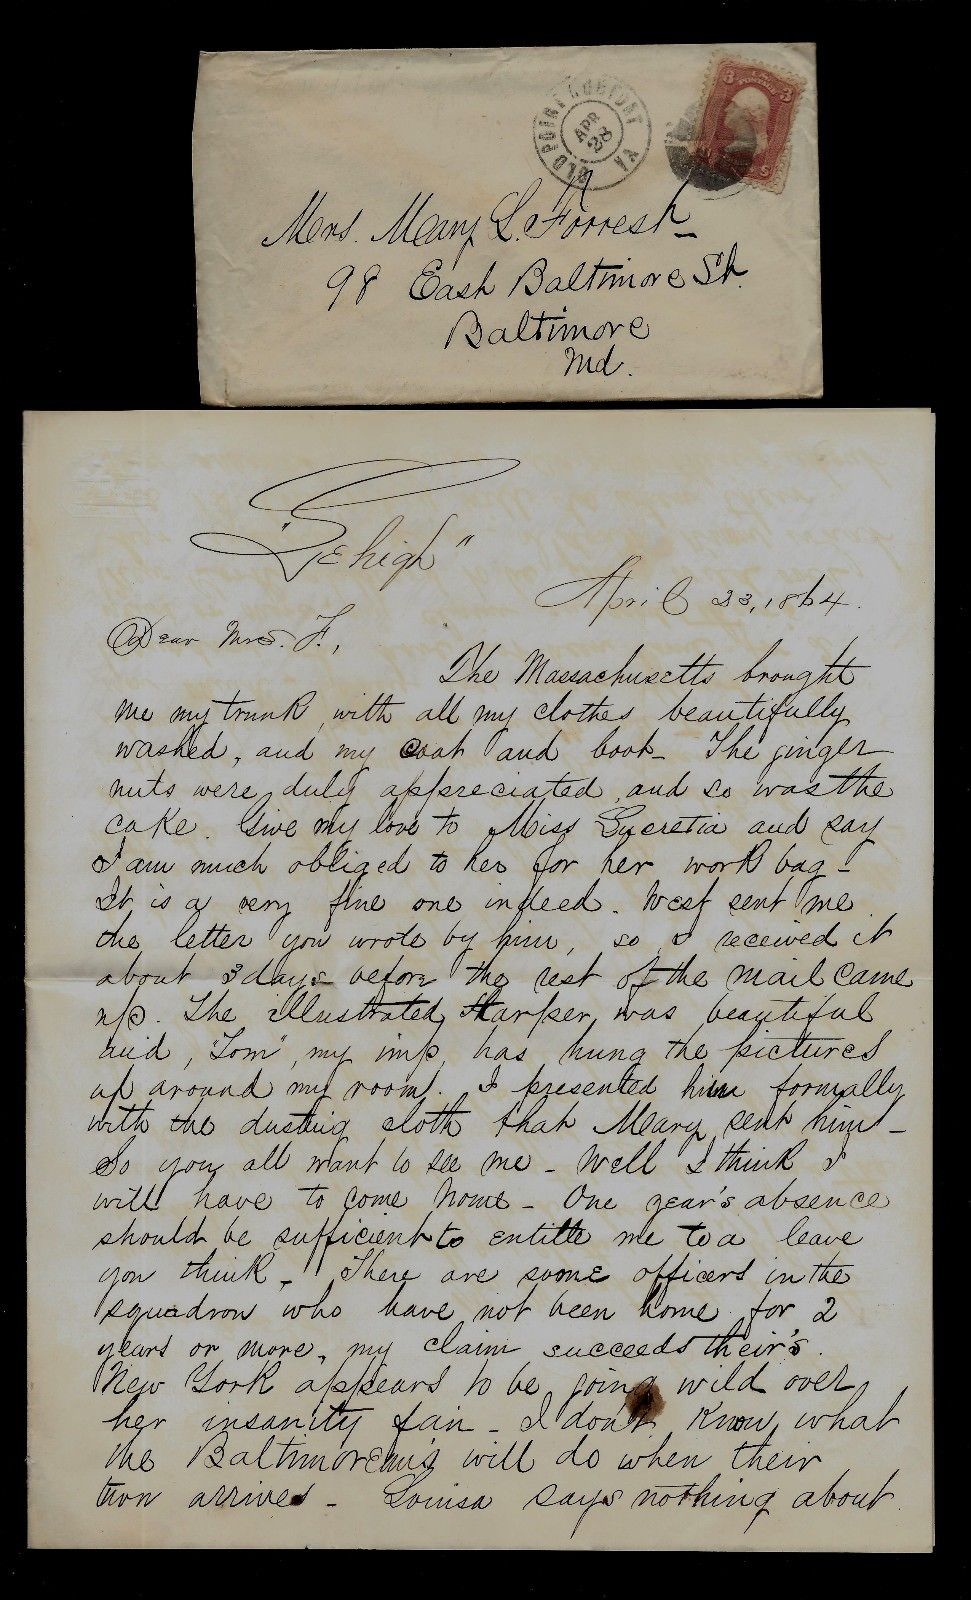 OLD POINT COMFORT VA
APR
28
3 U.S. POSTAGE 3
Mrs. Mary L. Forrest
98 East Baltimore St.
Baltimore
Md.
"Lehigh"
April 23, 1864.
Dear Mrs. F.,
The Massachusetts brought
me my trunk, with all my clothes beautifully
washed, and my coat and book - The ginger
nuts were duly appreciated and so was the
cake. Give my love to Miss Lucretia and say
I am much obliged to her for her work bag -
It is a very fine one indeed. West sent me
the letter you wrote by him, so I received it
about 3 days before the rest of the mail came
up. The illustrated Harper was beautiful
and, "Tom", my imp, has hung the pictures
up around my room. I presented him formally
with the dusting cloth that Mary sent him -
So you all want to see me - Well I think I
will have to come home - One year's absence
should be sufficient to entitle me to a leave
you think - There are some officers in the
squadron who have not been home for 2
years or more, my claim succeeds their's.
New York appears to be going wild over
her insanity fair - I don't know what
the Baltimoreans will do when their
turn arrives - Louisa says nothing about